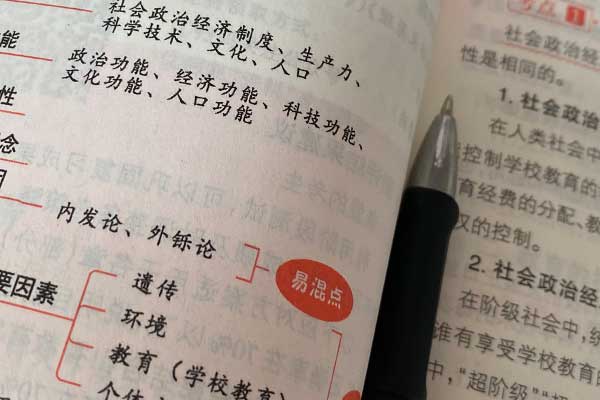 社会政治经济制度、生产力、
科学技术、文化、人口
能
政治功能、经济功能、科技功能、
文化功能、人口功能
性
念
内发论、外铄论
易混点
要因素
遗传
环境
教育（学校教育）
个体
考点 1
社会政治经
性是相同的。
1. 社会政治
在人类社会中
控制学校教育的
育经费的分配、教
权的控制。
2. 社会政治经
在阶级社会中，统
谁有享受学校教育的
中，“超阶级”“超